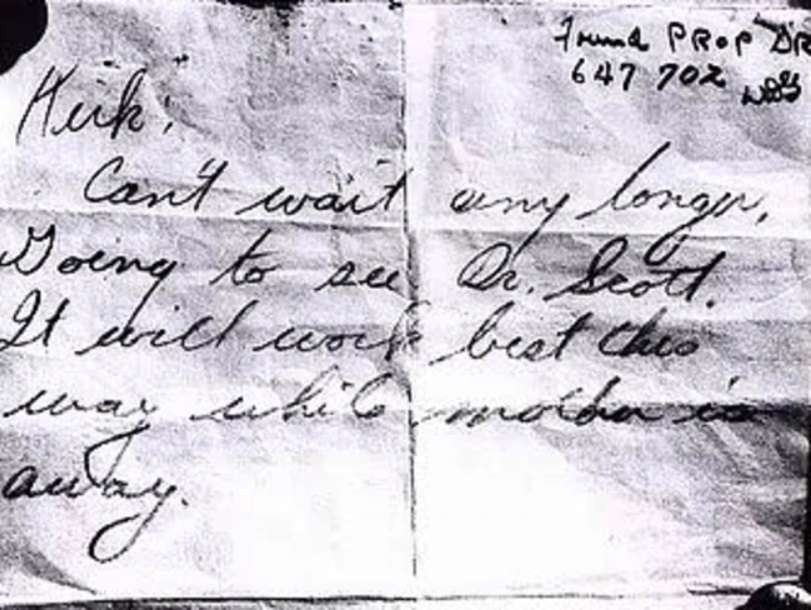 Found PROP DR
647 702
Kirk,
Can't wait any longer,
Going to see Dr. Scott.
It will work best this
way while mother is
away.